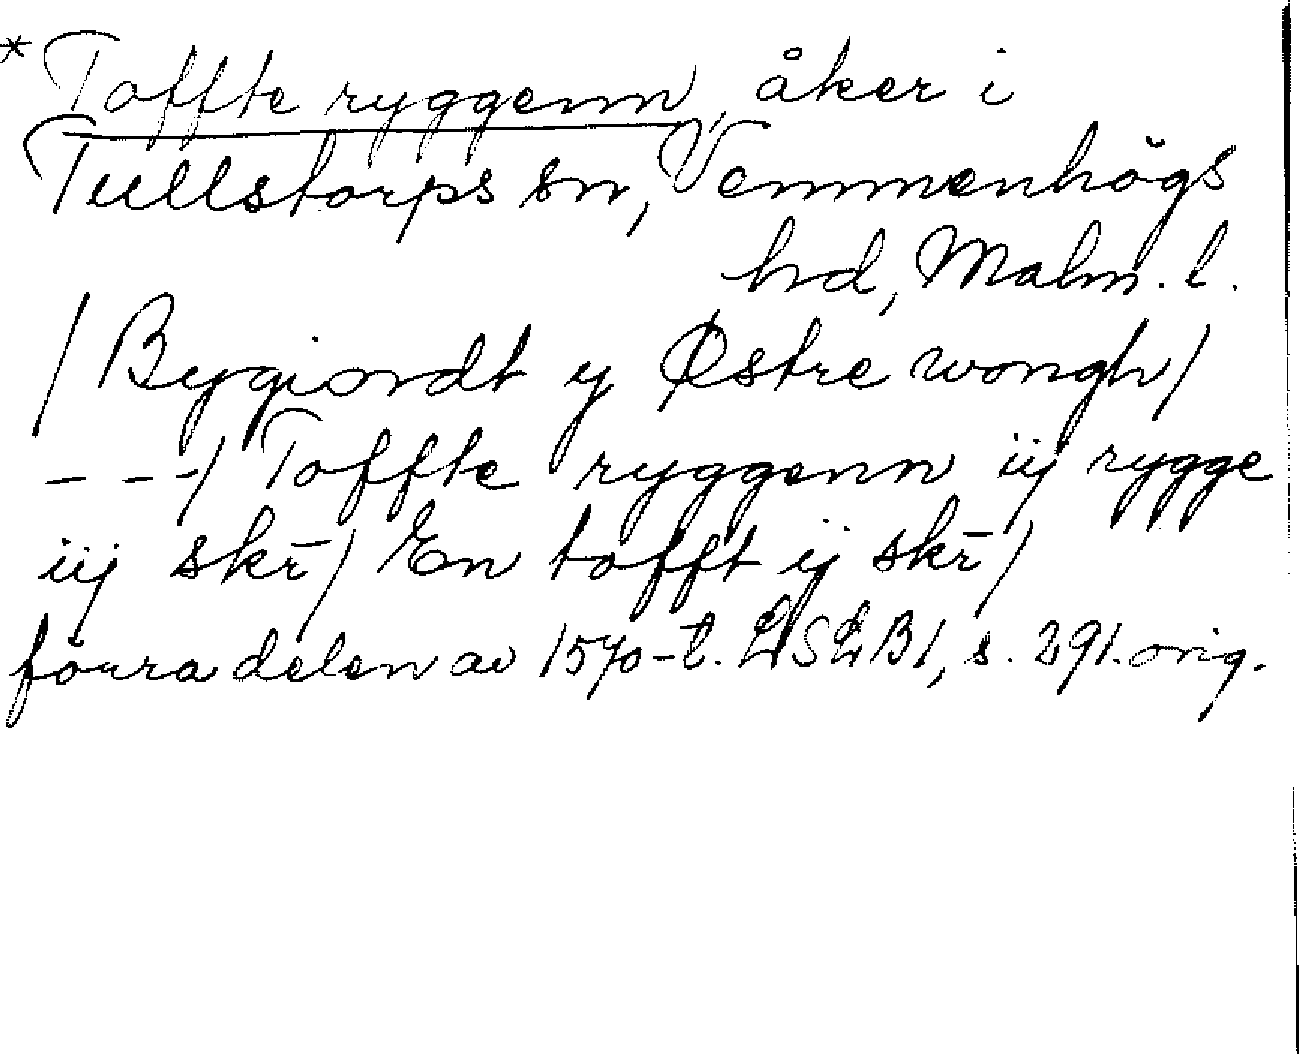 *Toffte ryggenn, åker i
Tullstorps sn, Vemmenhögs
hd, Malm. l.
/ Bygiordt y Østre wongh/
– – –/ Toffte ryggenn iij rygge
iij skr̄/ En tofft ij skr̄/
förra delen av 1570-t. LSLB1, s. 291. orig.